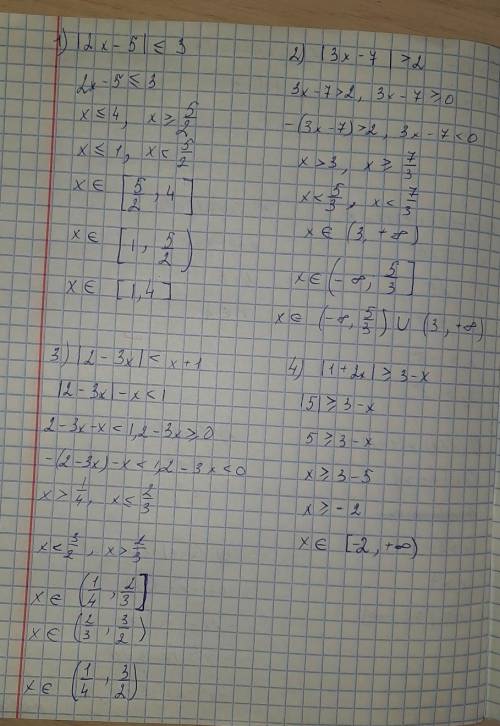 1) |2x - 5| ≤ 3
2x - 5 ≤ 3
x ≤ 4, x ≥ 5/2
x ≤ 1, x < 5/2
x ∈ [5/2, 4]
x ∈ [1, 5/2)
x ∈ [1, 4]
2) |3x - 7| > 2
3x - 7 > 2, 3x - 7 ≥ 0
-(3x - 7) > 2, 3x - 7 < 0
x > 3, x ≥ 7/3
x < 5/3, x < 7/3
x ∈ (3, +∞)
x ∈ (-∞, 5/3]
x ∈ (-∞, 5/3] ∪ (3, +∞)
3) |2 - 3x| < x + 1
|2 - 3x| - x < 1
2 - 3x - x < 1, 2 - 3x ≥ 0
-(2 - 3x) - x < 1, 2 - 3x < 0
x > 1/4, x ≤ 2/3
x < 3/2, x > 2/3
x ∈ (1/4, 2/3]
x ∈ (2/3, 3/2)
x ∈ (1/4, 3/2)
4) |1 + 2x| ≥ 3 - x
|5| ≥ 3 - x
5 ≥ 3 - x
x ≥ 3 - 5
x ≥ -2
x ∈ [-2, +∞)